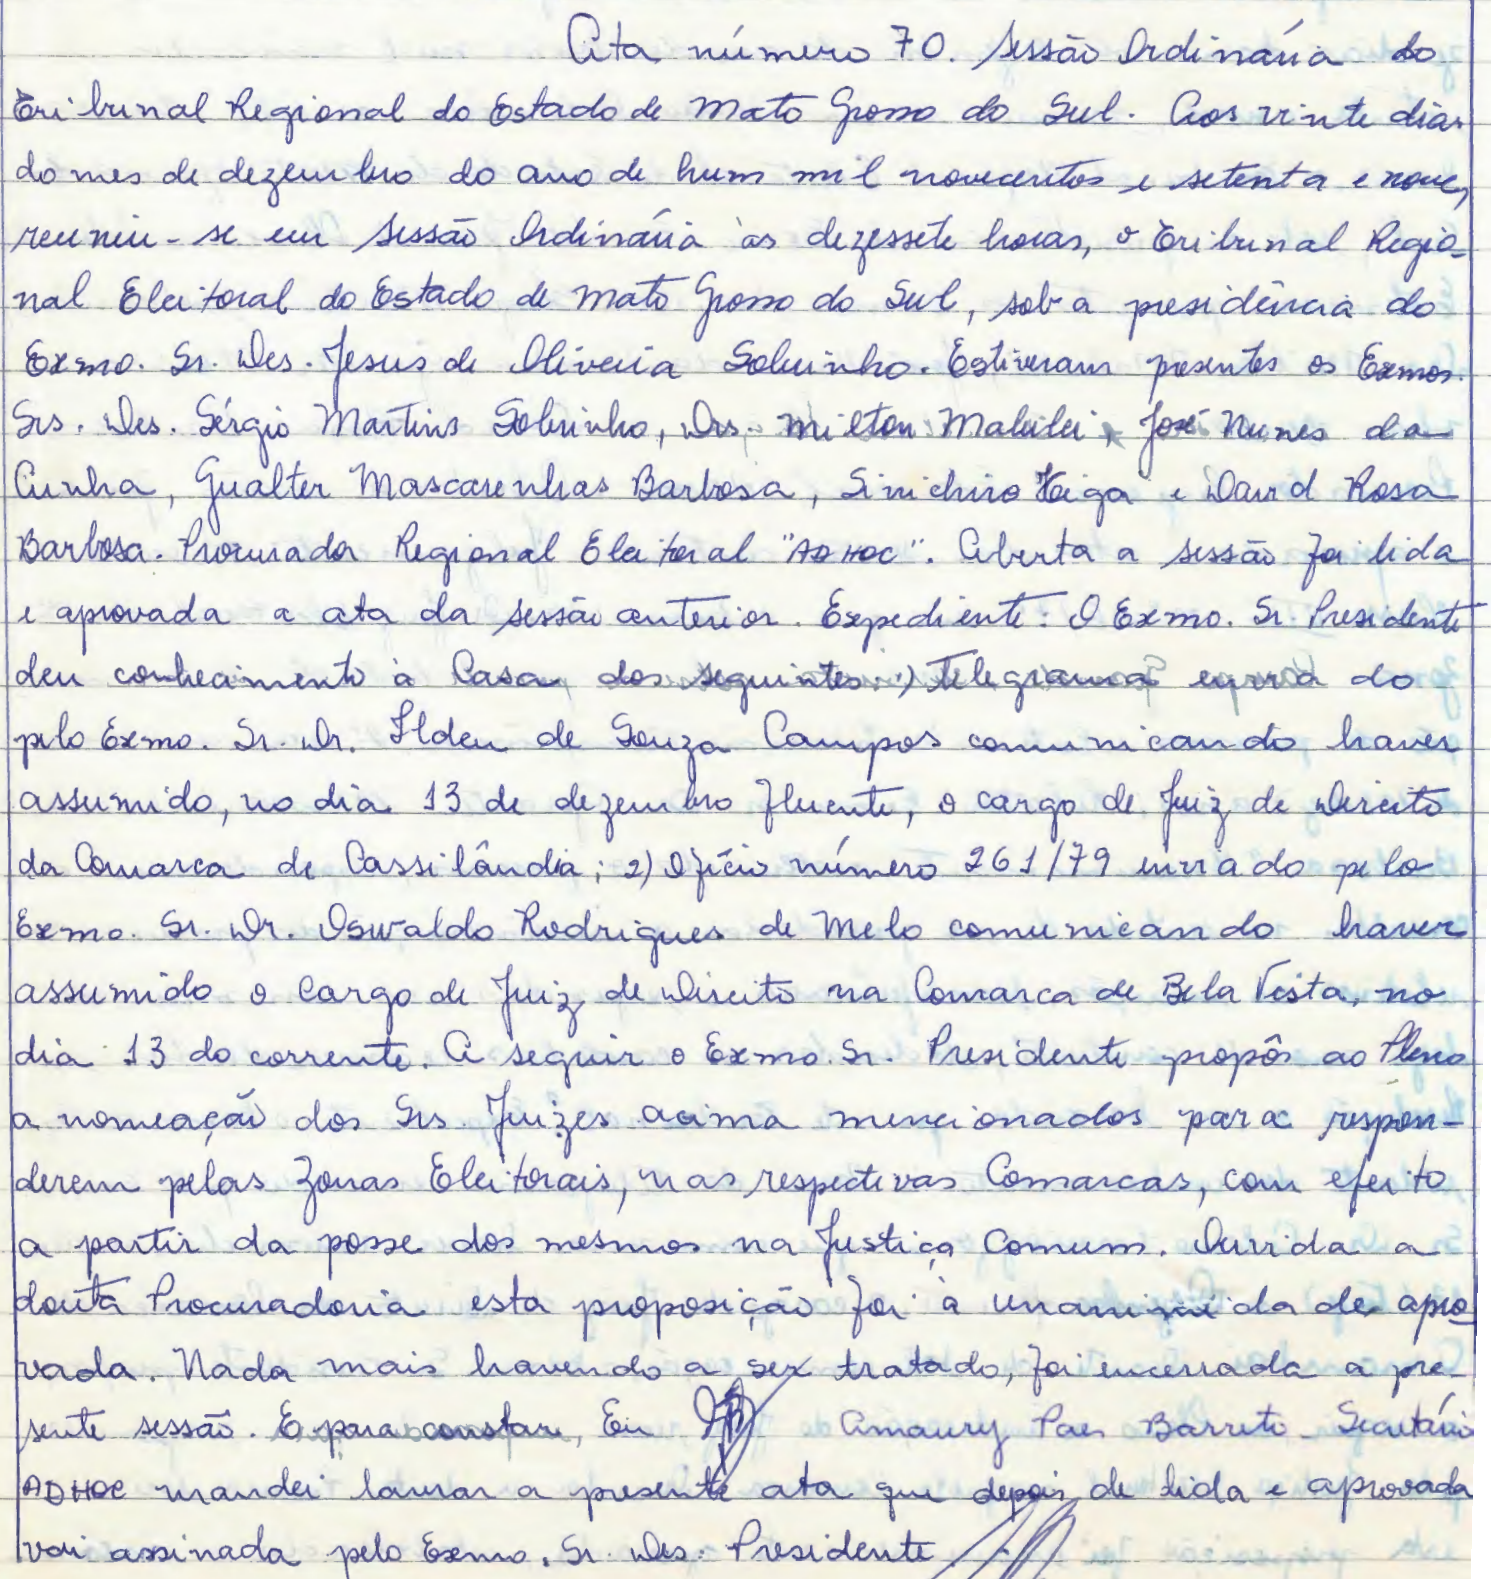 Ata número 70. Sessão Ordinária do
Tribunal Regional do Estado de Mato Grosso do Sul. Aos vinte dias
do mes de dezembro do ano de hum mil novecentos e setenta e nove,
reuniu-se em Sessão Ordinária às dezessete horas, o Tribunal Regio-
nal Eleitoral do Estado de Mato Grosso do Sul, sob a presidência do
Exmo. Sr. Des. Jesus de Oliveira Sobrinho. Estiveram presentes os Exmos.
Srs. Des. Sérgio Martins Sobrinho, Drs. Milton Malulei, José Nunes da
Cunha, Gualter Mascarenhas Barbosa, Sinichiro Higa e David Rosa
Barbosa. Procurador Regional Eleitoral "AD HOC". Aberta a sessão foi lida
e aprovada a ata da sessão anterior. Expediente: O Exmo. Sr. Presidente
deu conhecimento à Casa dos seguintes: 1) Telegrama enviado
pelo Exmo. Sr. Dr. Ilden de Souza Campos comunicando haver
assumido, no dia 13 de dezembro fluente, o cargo de Juiz de Direito
da Comarca de Cassilândia; 2) Ofício número 261/79 enviado pelo
Exmo. Sr. Dr. Oswaldo Rodrigues de Melo comunicando haver
assumido o cargo de Juiz de Direito na Comarca de Bela Vista, no
dia 13 do corrente. A seguir o Exmo. Sr. Presidente propôs ao Pleno
a nomeação dos Srs. Juizes acima mencionados para respon-
derem pelas Zonas Eleitorais, nas respectivas Comarcas, com efeito
a partir da posse dos mesmos na Justiça Comum. Ouvida a
douta Procuradoria esta proposição foi à unanimidade apro
vada. Nada mais havendo a ser tratado, foi encerrada a pre-
sente sessão. E para constar, Eu Amaury Paes Barreto - Secretário
AD HOC mandei lavrar a presente ata que depois de lida e aprovada
vai assinada pelo Exmo. Sr. Des. Presidente